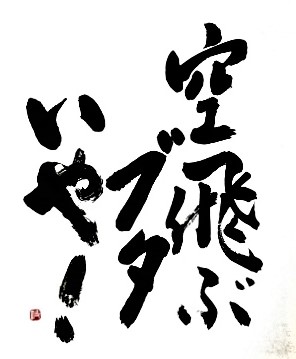 空飛ぶ
ブタ
いや!